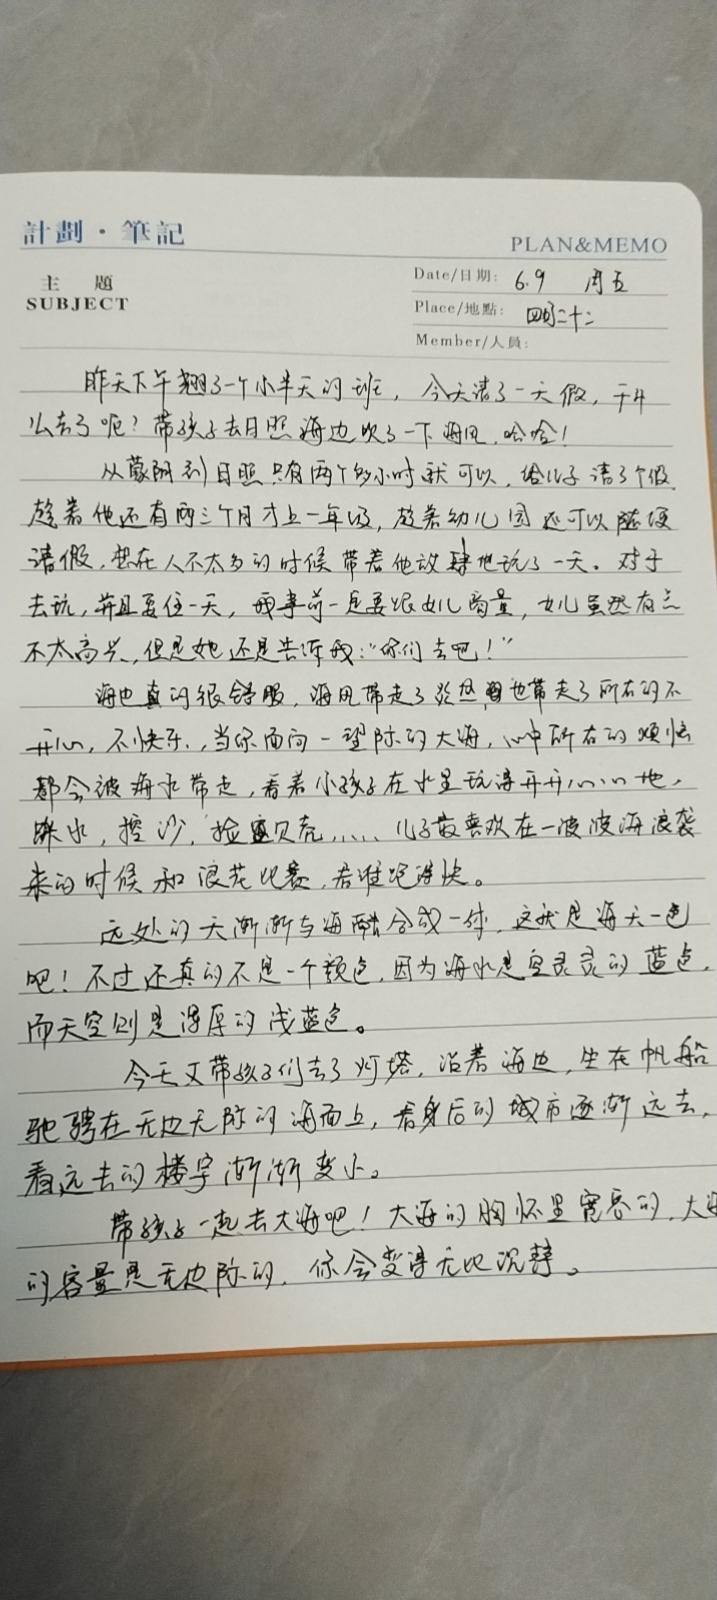 計劃·筆記
PLAN&MEMO
主 題
SUBJECT
Date/日期: 6.9 周五
Place/地點: 二十二
Member/人員:
昨天下午翘了一个小半天的班，今天请了一天假，干什
么去了呢？带孩子去日照海边吹了一下海风，哈哈！
从蒙阴到日照只有两个多小时就可以，给儿子请了个假
趁着他还有两三个月才上一年级，趁着幼儿园还可以随便
请假，想在人不太多的时候带着他放肆地玩了一天。对于
去玩，并且要住一天，我事前一是要跟女儿商量，女儿虽然有点
不太高兴，但是她还是告诉我：“你们去吧！”
海边真的很舒服，海风带走了炎热，也带走了所有的不
开心，不快乐，当你面向一望际的大海，心中所有的烦恼
都会被海水带走，看着小孩子在水里玩得开开心心地，
踩水，挖沙，捡贝壳……儿子最喜欢在一波波海浪袭
来的时候和浪花比赛，看谁跑得快。
远处的天渐渐与海融合成一体，这就是海天一色
吧！不过还真的不是一个颜色，因为海水是空灵灵的蓝色，
而天空则是浑厚的浅蓝色。
今天又带孩子们去了灯塔，沿着海边，坐在帆船
驰骋在无边无际的海面上，看身后的城市逐渐远去，
看远去的楼宇渐渐变小。
带孩子一起去大海吧！大海的胸怀是宽容的，大海
的容量是无边际的，你会变得无比沉静。